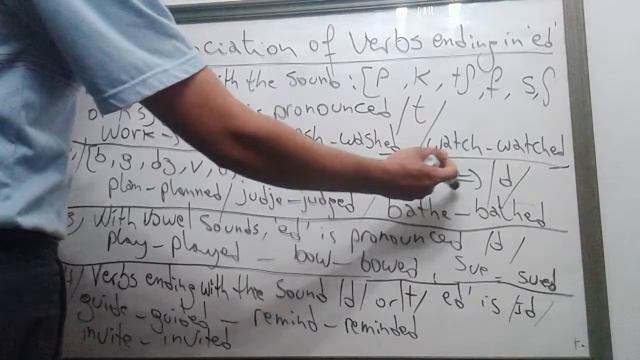 ciation of Verbs ending in 'ed'
with the sound : [p, k, tʃ, f, s, ʃ
is pronounced /t/
work - washed / watch - watched
/d/
plan - planned / judge - judged / bathe - bathed
3, With vowel sounds, 'ed' is pronounced /d/
play - played - bow - bowed, sue - sued
4/ Verbs ending with the sound /d/ or /t/ 'ed' is /ɪd/
guide - guided - remind - reminded
invite - invited